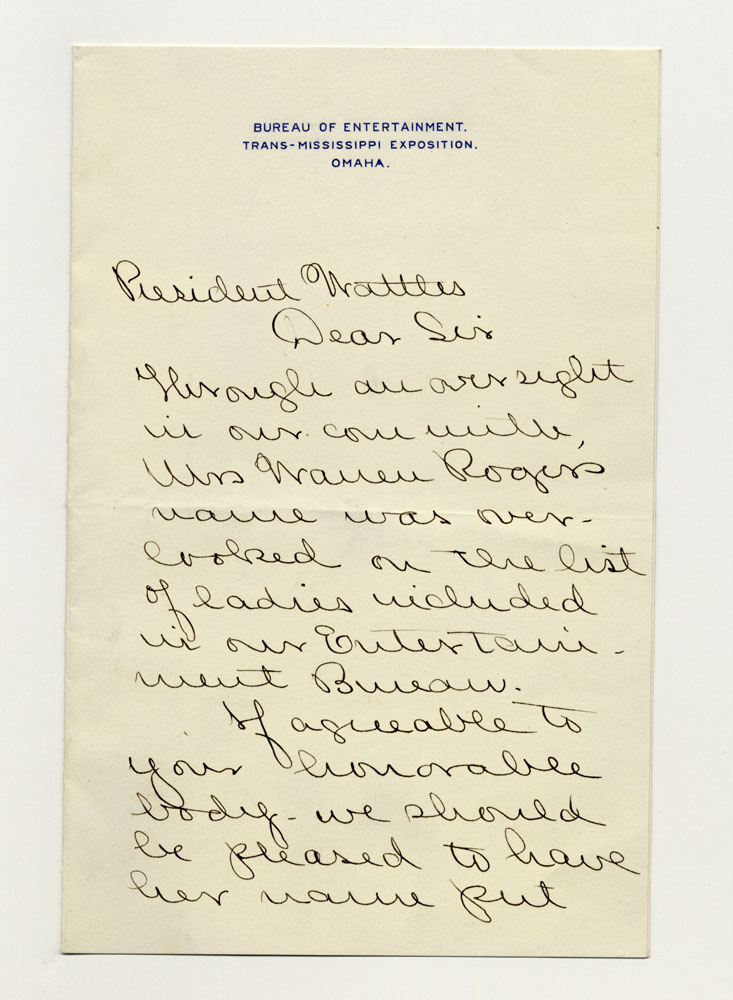 BUREAU OF ENTERTAINMENT.
TRANS-MISSISSIPPI EXPOSITION.
OMAHA.
President Wattles
Dear Sir
Through an oversight
in our committee,
Mrs Warren Rogers
name was over-
looked on the list
of ladies included
in our Entertain-
ment Bureau.
If agreeable to
your honorable
body - we should
be pleased to have
her name put